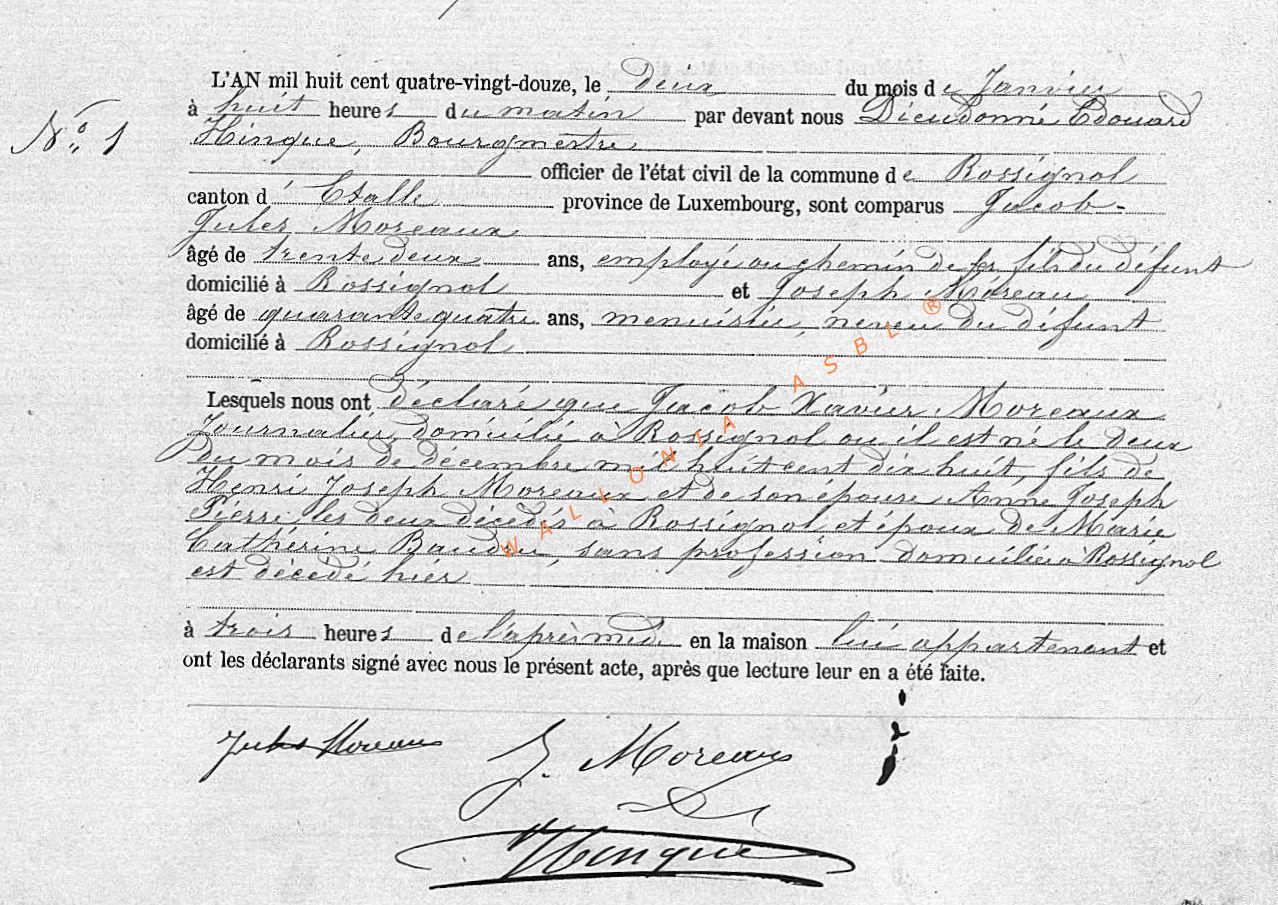 L'AN mil huit cent quatre-vingt-douze, le deux du mois de Janvier
à huit heures du matin par devant nous Dieudonné Edouard
N° 1
Hinque, Bourgmestre
officier de l'état civil de la commune de Rossignol
canton d'Etalle province de Luxembourg, sont comparus Jacob-
Jules Moreaux
âgé de trente deux ans, employé au chemin de fer fils du défunt
domicilié à Rossignol et Joseph Moreau
âgé de quarante quatre ans, menuisier, neveu du défunt
domicilié à Rossignol
Lesquels nous ont déclaré que Jacob Xavier Moreaux
Journalier, domicilié à Rossignol ou il est né le deux
du mois de décembre mil huit cent dix huit, fils de
Henri Joseph Moreaux et de son épouse Anne Joseph
Pierre les deux décédés à Rossignol et époux de Marie
Cathérine Baudu, sans profession domiciliée à Rossignol
est décédé hier
à trois heures de l'après midi en la maison lui appartenant et
ont les déclarants signé avec nous le présent acte, après que lecture leur en a été faite.
WALLONIA ASBL ®
Jules Moreaux
J. Moreau
Hinque